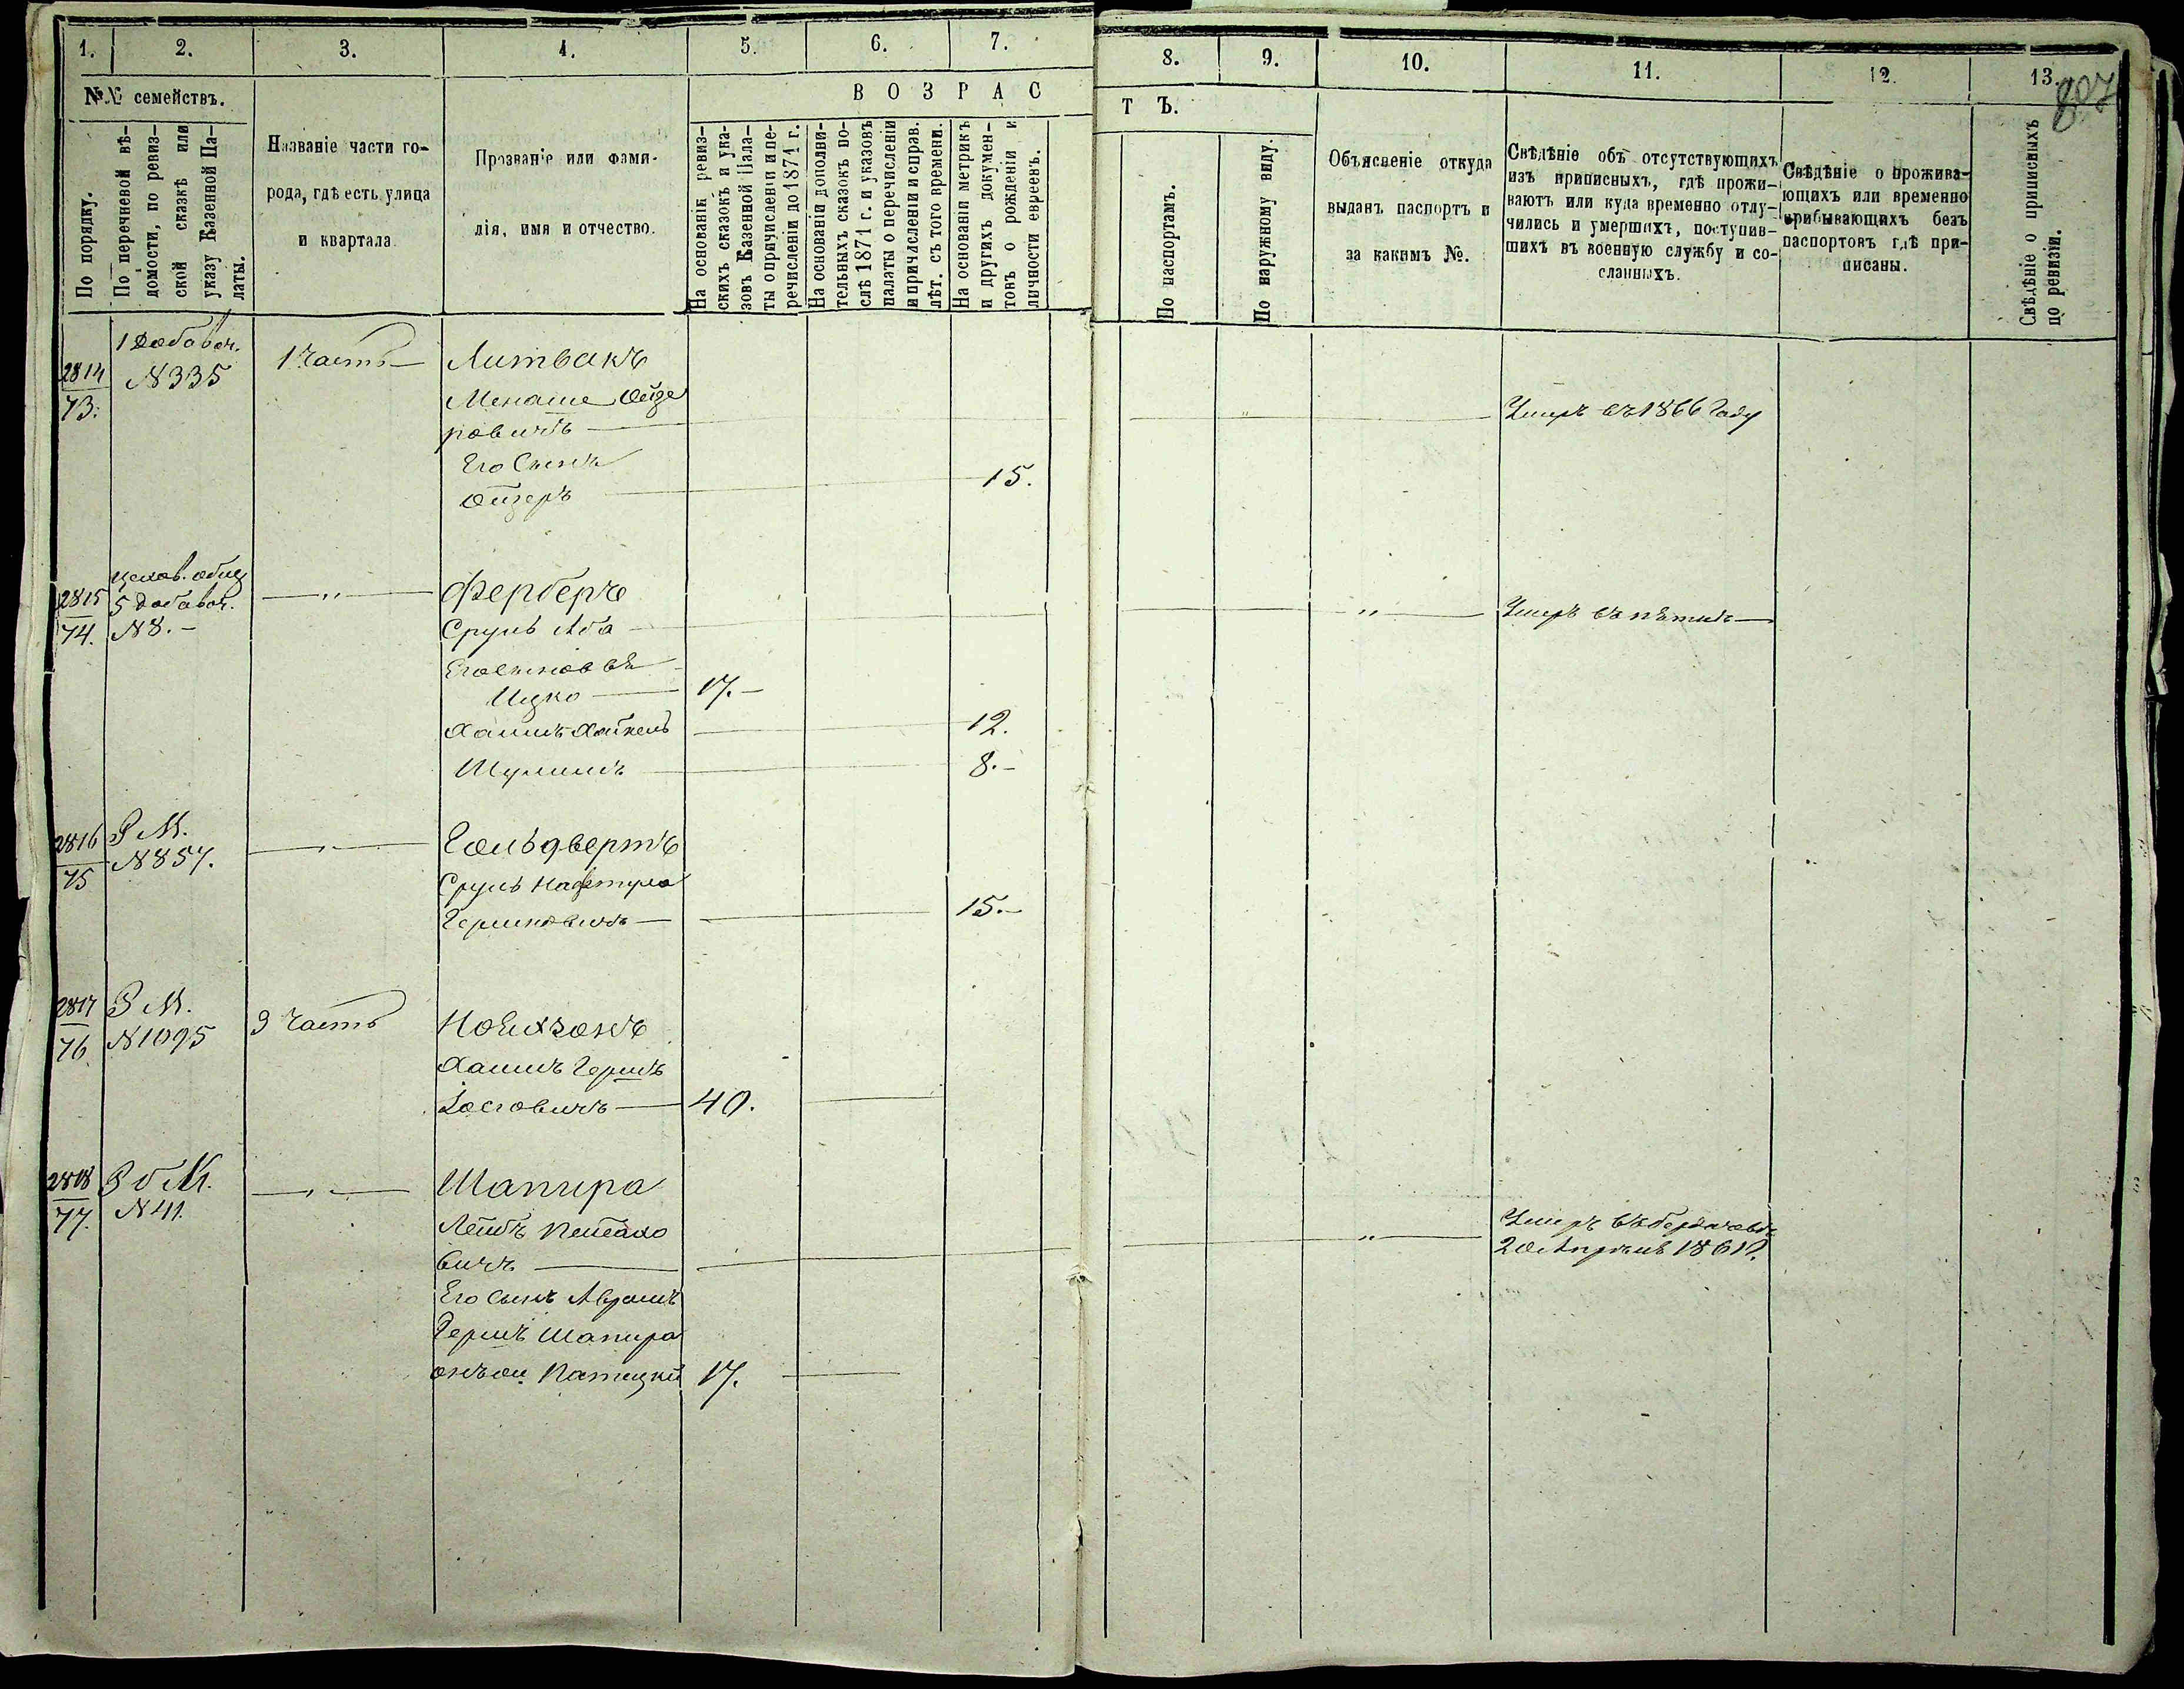 1. 2. 3. 4. 5. 6. 7. 8. 9. 10. 11. 12. 13.
807
№№ семействъ.
По порядку.
По перечневой вѣ-
домости, по ревиз-
ской сказкѣ или
указу Казенной Па-
латы.
Названіе части го-
рода, гдѣ есть улица
и квартала
Прозваніе или фами-
лія, имя и отчество.
ВОЗРАСТЪ.
На основаніи ревиз-
скихъ сказокъ и ука-
зовъ Казенной Пала-
ты о причисленіи и пе-
речисленіи до 1871 г.
На основаніи дополни-
тельныхъ сказокъ по-
слѣ 1871 г. и указовъ
палаты о перечисленіи
и причисленіи и справ.
лѣт. съ того времени.
На основаніи метрикъ
и другихъ докумен-
товъ о рожденіи и
личности евреевъ.
По паспортамъ.
По наружному виду.
Объясненіе откуда
выданъ паспортъ и
за какимъ №.
Свѣдѣніе объ отсутствующихъ
изъ приписныхъ, гдѣ прожи-
ваютъ или куда временно отлу-
чились и умершихъ, поступив-
шихъ въ военную службу и со-
сланныхъ.
Свѣдѣніе о прожива-
ющихъ или временно
прибывающихъ безъ
паспортовъ гдѣ при-
писаны.
Свѣдѣніе о приписныхъ
по ревизіи.
2814
73.
1 Добавоч.
№335
1 Часть
Литвакъ
Менаше Ойзе
ровичъ
Умеръ въ 1866 Году
Его Сынъ
Ойзеръ 15.
2815
74.
Цехов. общ
5 Добавоч.
№8.
"
Ферберъ
Сруль Аба
" Умеръ
Его сыновья
Ицко 17.
Хаимъ Хайкель 12.
Шулимъ 8.
2816
75
Р М.
№857.
"
Гольдвертъ
Сруль Нафтула
Гершковичъ 15.
2817
76
Р М.
№1095
3 Часть
Хаимъ Гершъ
Іосіовичъ 40.
2818
77.
Р М.
№41.
"
Шапира
Лейбъ
вичъ
" Умеръ въ Бердичевѣ
20 Апрѣля 1861 г.
Его Сынъ Аврумъ
Гершъ Шапира
17.